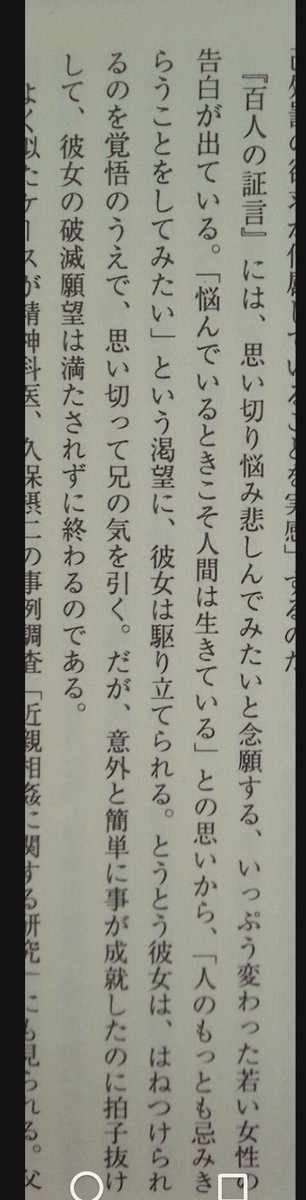 していることを実感」するのだ
『百人の証言』には、思い切り悩み悲しんでみたいと念願する、いっぷう変わった若い女性の
告白が出ている。「悩んでいるときこそ人間は生きている」との思いから、「人のもっとも忌みき
らうことをしてみたい」という渇望に、彼女は駆り立てられる。とうとう彼女は、はねつけられ
るのを覚悟のうえで、思い切って兄の気を引く。だが、意外と簡単に事が成就したのに拍子抜け
して、彼女の破滅願望は満たされずに終わるのである。
よく似たケースが精神科医、久保摂二の事例調査「近親相姦に関する研究」にも見られる。父